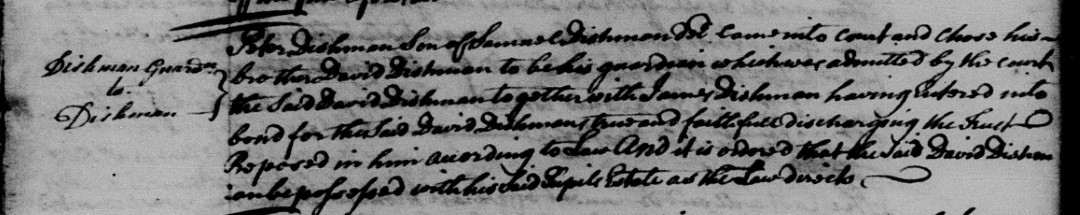 Dishman Guardn
to
Dishman
Peter Dishman Son of Samuel Dishman Decd Came into Court and Chose his
brother David Dishman to be his guardian which was admitted by the Court
the Said David Dishman together with James Dishman having Entered into
bond for the Said David Dishmans true and faithfull discharging the Trust
Reposed in him according to Law And it is ordered that the Said David Dishm
an be possessed with his Said Pupils Estate as the Law directs